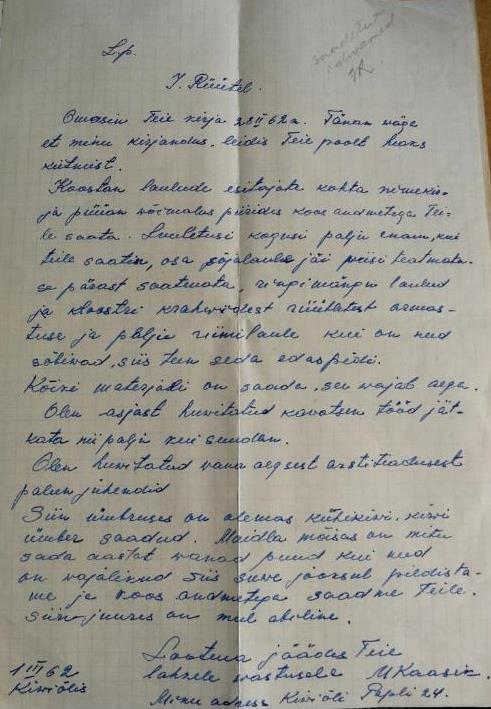 saadetud
juhendid
IR.
L.p.
I. Rüütel.
Omasin Teie kirja 28 II 62 a. Tänan väga
et minu kirjandus leidis Teie poolt heaks
kiitmist.
Koostan laulude esitajate kohta nimekir-
ja püüan võimalus piirides koos andmetega Tei-
le saata. Luuletusi kogusi palju enam, kui
teile saatsin, osa sõjalaule jäi viisi teatmata-
se pärast saatmata, ringimängu laulud
ja kloostri krahvidest rüütlitest armas-
tuse ja palju riimilaule kui on need
sobivad, siis teen seda edaspidi.
Kõiki materjali on saada, see wajab aega.
Olen asjast huwitatud kavatsen tööd jät-
kata nii palju kui suudan.
Olen huwitatud wana aegsest arstiteadusest
palun juhendid
Siin ümbruses on olemas kükikiwi, kiwi
ümber saadud. Maidla mõisas on mitu
sada aastat wanad puud kui need
on wajalikud siis suve jooksul pildista-
me ja koos andmetega saadme teile.
Siinjuures on mul abiline.
Lootma jäädes Teie
lahkele wastusele M Kaasik.
1 III 62
Kiwiõlis
Minu adress Kiwiõli Papli 24.